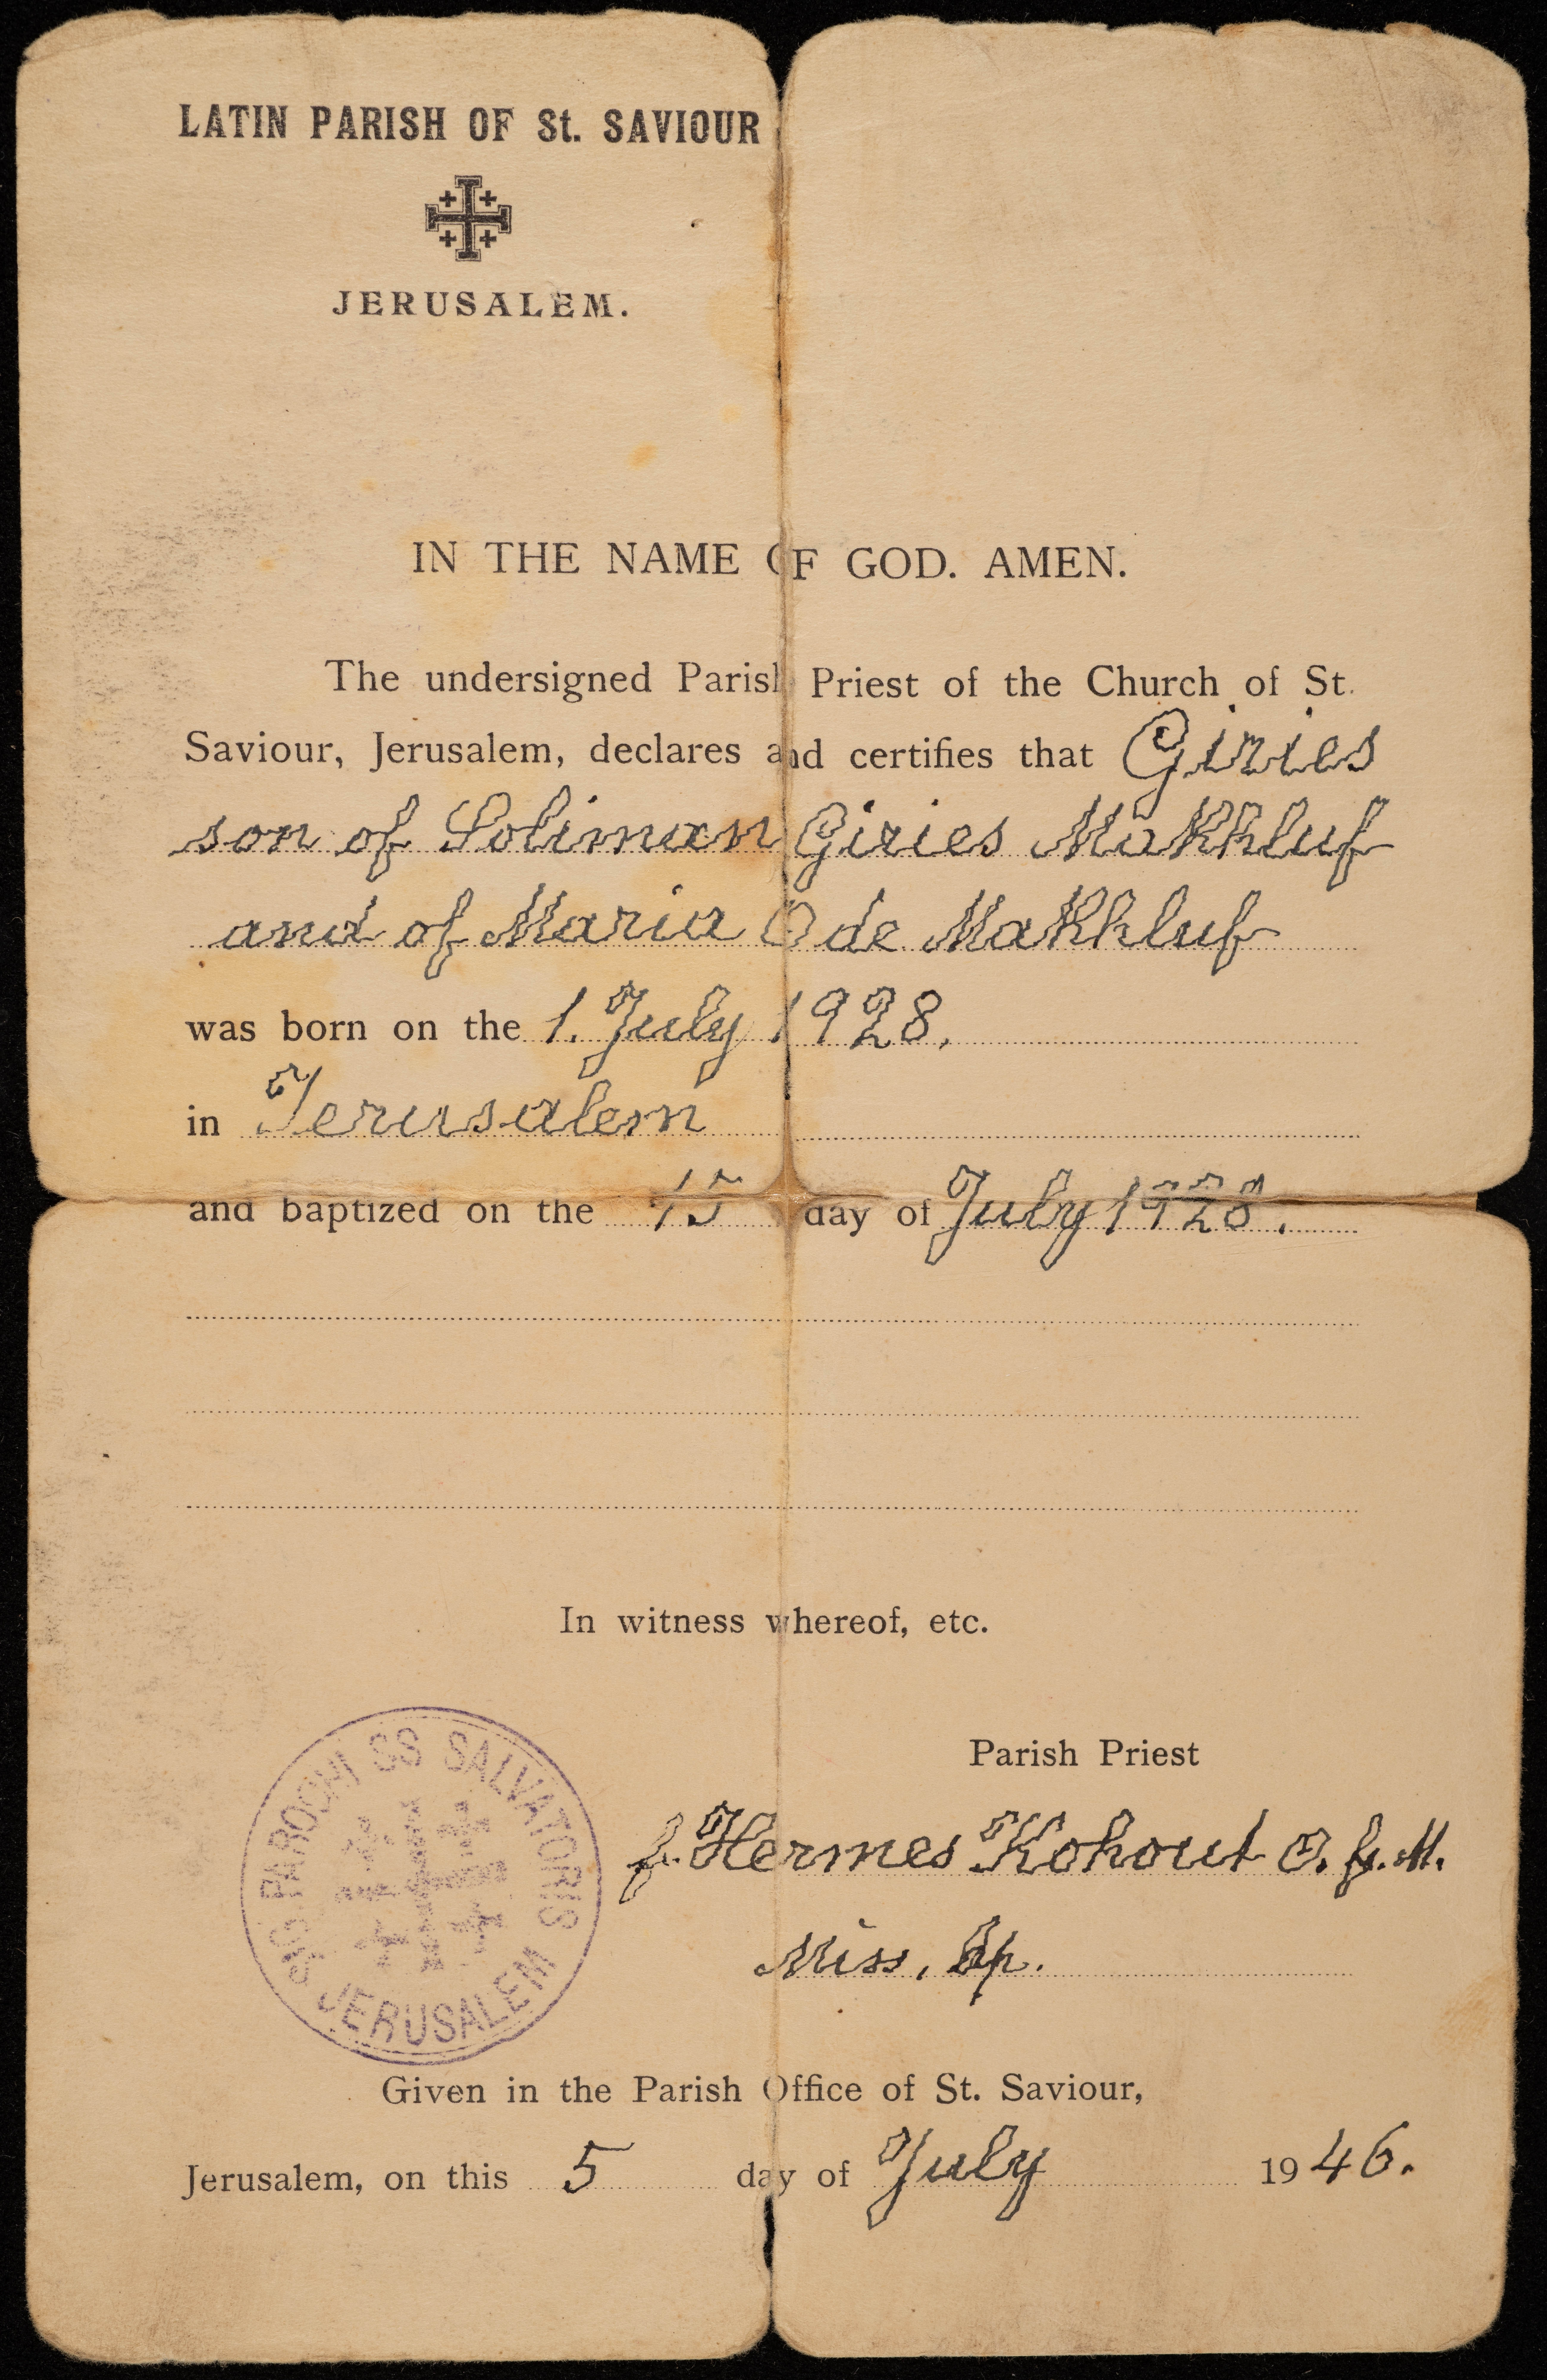 LATIN PARISH OF St. SAVIOUR
JERUSALEM.
IN THE NAME OF GOD. AMEN.
The undersigned Parish Priest of the Church of St.
Saviour, Jerusalem, declares and certifies that Giries
son of Soliman Giries Makhluf
and of Maria Ode Makhluf
was born on the 1. July 1928.
in Jerusalem
and baptized on the 15 day of July 1928.
In witness whereof, etc.
Parish Priest
f. Hermes Kohout O.f.M.
Miss. Ap.
PAROCHI SS SALVATORIS
JERUSALEM
Given in the Parish Office of St. Saviour,
Jerusalem, on this 5 day of July 1946.